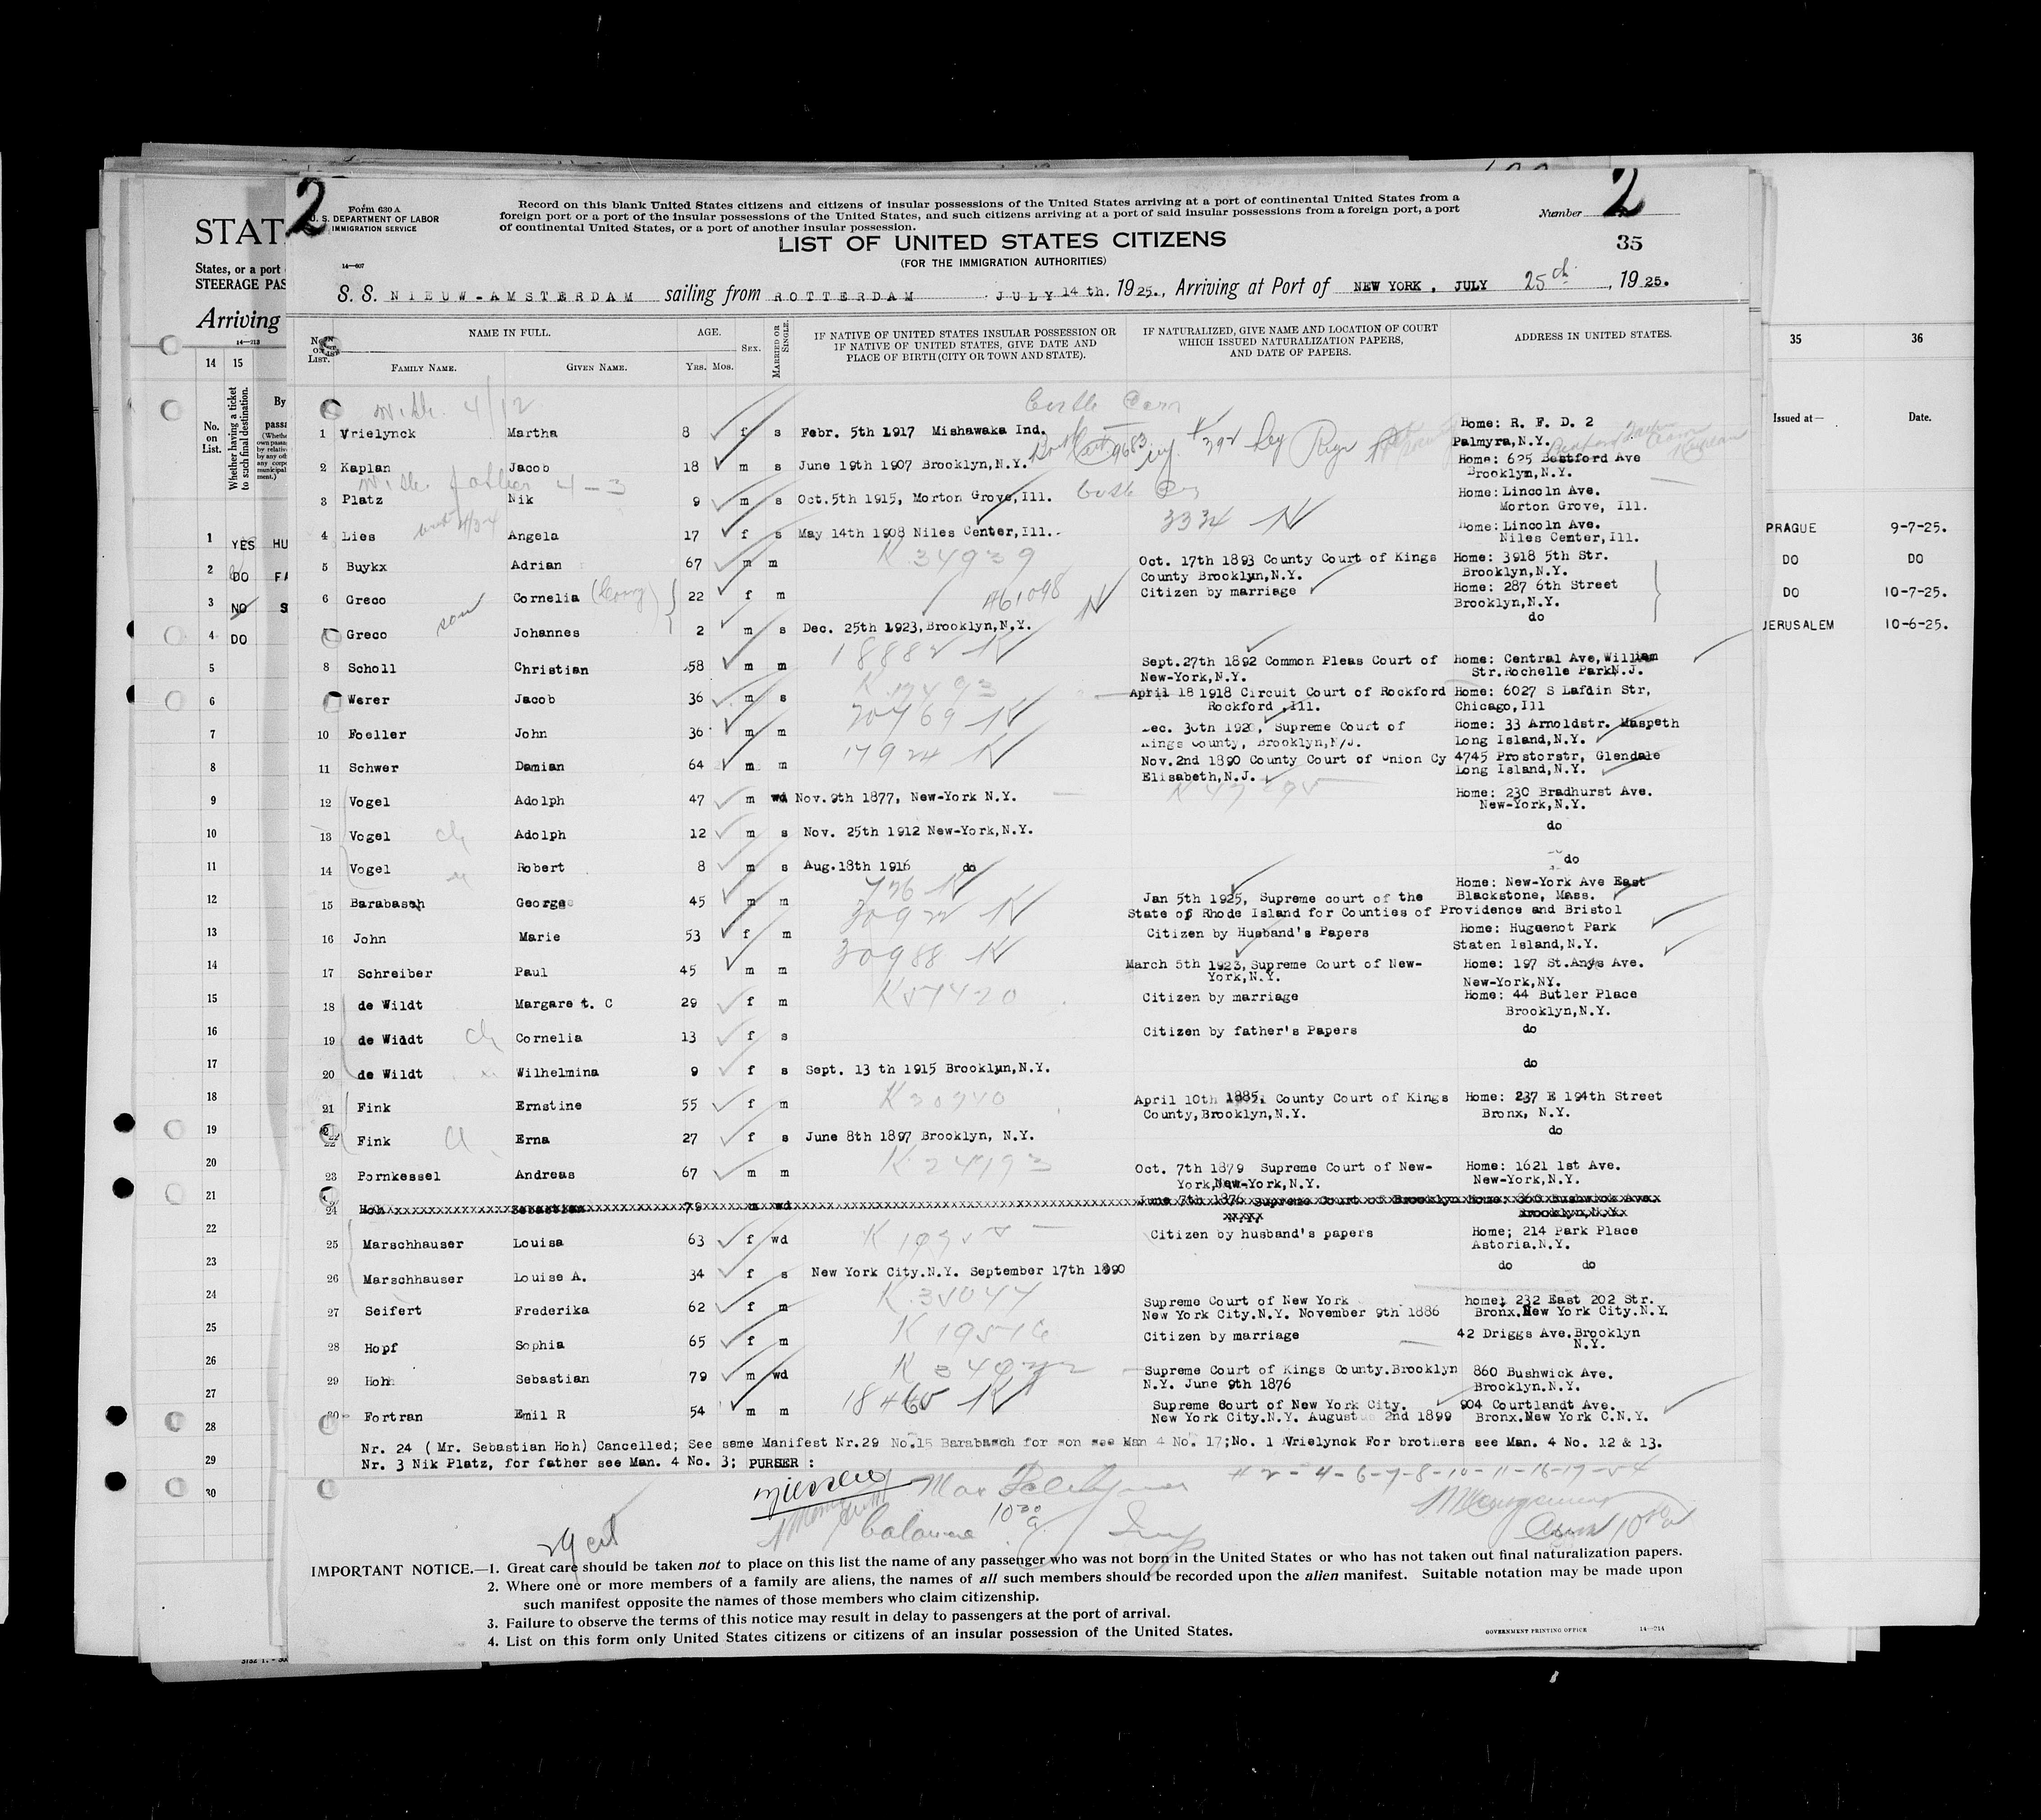 2
Form 630 A
U. S. DEPARTMENT OF LABOR
IMMIGRATION SERVICE
Record on this blank United States citizens and citizens of insular possessions of the United States arriving at a port of continental United States from a
foreign port or a port of the insular possessions of the United States, and such citizens arriving at a port of said insular possessions from a foreign port, a port
of continental United States, or a port of another insular possession.
Number 2
LIST OF UNITED STATES CITIZENS
35
(FOR THE IMMIGRATION AUTHORITIES)
14—607
S. S. NIEUW-AMSTERDAM sailing from ROTTERDAM JULY 14 th. 1925., Arriving at Port of NEW YORK, JULY 25th, 1925.
No. on List.
NAME IN FULL.
Family Name. Given Name.
AGE.
Yrs. Mos.
Sex.
Married or Single.
IF NATIVE OF UNITED STATES INSULAR POSSESSION OR
IF NATIVE OF UNITED STATES, GIVE DATE AND
PLACE OF BIRTH (CITY OR TOWN AND STATE).
IF NATURALIZED, GIVE NAME AND LOCATION OF COURT
WHICH ISSUED NATURALIZATION PAPERS,
AND DATE OF PAPERS.
ADDRESS IN UNITED STATES.
4/12
1 Vrielynck Martha 8 f s Febr. 5th 1917 Mishawaka Ind. Home: R. F. D. 2
Palmyra,N.Y.
2 Kaplan Jacob 18 m s June 19th 1907 Brooklyn,N.Y. Home: 625 Bestford Ave
Brooklyn,N.Y.
father 4-3
3 Platz Nik 9 m s Oct.5th 1915, Morton Grove,Ill. Home: Lincoln Ave.
Morton Grove, Ill.
4 Lies Angela 17 f s May 14th 1908 Niles Center,Ill. 3334 N Home: Lincoln Ave.
Niles Center,Ill.
5 Buykx Adrian 67 m m K 34939 Oct. 17th 1893 County Court of Kings Home: 3918 5th Str.
County Brooklyn,N.Y. Brooklyn,N.Y.
6 Greco Cornelia 22 f m 461098 N Citizen by marriage Home: 287 6th Street
Brooklyn,N.Y.
son
7 Greco Johannes 2 m s Dec. 25th 1923,Brooklyn,N.Y. do
18882 K
8 Scholl Christian 58 m m Sept.27th 1892 Common Pleas Court of Home: Central Ave,William
New-York,N.Y. Str.Rochelle ParkN.J.
9 Werer Jacob 36 m s April 18 1918 Circuit Court of Rockford Home: 6027 S Lafdin Str,
Rockford ,Ill. Chicago,Ill
20769 K
10 Foeller John 36 m m Dec. 30th 1920, Supreme Court of Home: 33 Arnoldstr. Maspeth
Kings County, Brooklyn,N/J. Long Island,N.Y.
17924 K
11 Schwer Damian 64 m m Nov.2nd 1890 County Court of Union Cy 4745 Prostorstr, Glendale
Elisabeth,N.J. Long Island,N.Y.
12 Vogel Adolph 47 m wd Nov.9th 1877, New-York N.Y. Home: 230 Bradhurst Ave.
New-York,N.Y.
13 Vogel ch Adolph 12 m s Nov. 25th 1912 New-York,N.Y. do
14 Vogel Robert 8 m s Aug.18th 1916 do do
726 K
15 Barabasch George 45 m m Jan 5th 1925, Supreme court of the Home: New-York Ave East
Blackstone, Mass.
State of Rhode Island for Counties of Providence and Bristol
30922 K
16 John Marie 53 f m Citizen by Husband's Papers Home: Huguenot Park
Staten Island,N.Y.
30988 K
17 Schreiber Paul 45 m m March 5th 1923,Supreme Court of New- Home: 197 St.Anys Ave.
York,N.Y. New-York,NY.
18 de Wildt Margare t. C 29 f m K57420 Citizen by marriage Home: 44 Butler Place
Brooklyn,N.Y.
19 de Widdt ch Cornelia 13 f s Citizen by father's Papers do
20 de Wildt Wilhelmina 9 f s Sept. 13 th 1915 Brooklyn,N.Y. do
21 Fink Ernstine 55 f m K20240 April 10th 1885. County Court of Kings Home: 237 E 194th Street
County,Brooklyn,N.Y. Bronx, N.Y.
22 Fink Erna 27 f s June 8th 1897 Brooklyn, N.Y. do
23 Pornkessel Andreas 67 m m K 24793 Oct. 7th 1879 Supreme Court of New- Home: 1621 1st Ave.
York,New-York,N.Y. New-York,N.Y.
24 Hoh Sebastian 79 m wd June 7th 1876 Supreme Court of Brooklyn Home: 860 Bushwick Ave.
N.Y. Brooklyn,N.Y.
25 Marschhauser Louisa 63 f wd Citizen by husband's papers Home; 214 Park Place
Astoria.N.Y.
26 Marschhauser Louise A. 34 f s New York City.N.Y. September 17th 1890 do do
27 Seifert Frederika 62 f m K 35044 Supreme Court of New York home; 232 East 202 Str.
New York City.N.Y. November 9th 1886 Bronx.New York City.N.Y.
28 Hopf Sophia 65 f m K 19516 Citizen by marriage 42 Driggs Ave.Brooklyn
N.Y.
29 Hoh Sebastian 79 m wd Supreme Court of Kings County.Brooklyn 860 Bushwick Ave.
N.Y. June 9th 1876 Brooklyn.N.Y.
30 Fortran Emil R 54 m m 18465 K Supreme Court of New York City. 904 Courtlandt Ave.
New York City.N.Y. August 2nd 1899 Bronx.New York C.N.Y.
Nr. 24 ( Mr. Sebastian Hoh) Cancelled; See same Manifest Nr.29 No.15 Barabasch for son see Man 4 No. 17;No. 1 Vrielynck For brothers see Man. 4 No. 12 & 13.
Nr. 3 Nik Platz, for father see Man. 4 No. 3; PURSER :
# 2-4-6-7-8-10-11-16-17-
IMPORTANT NOTICE.—1. Great care should be taken not to place on this list the name of any passenger who was not born in the United States or who has not taken out final naturalization papers.
2. Where one or more members of a family are aliens, the names of all such members should be recorded upon the alien manifest. Suitable notation may be made upon
such manifest opposite the names of those members who claim citizenship.
3. Failure to observe the terms of this notice may result in delay to passengers at the port of arrival.
4. List on this form only United States citizens or citizens of an insular possession of the United States.
GOVERNMENT PRINTING OFFICE 14—214
STAT
States, or a port
STEERAGE PAS
Arriving
14—213
14 15
No. on List.
Whether having a ticket to such final destination.
By
1 YES HU
2 DO FA
3 NO S
4 DO
5
6
7
8
9
10
11
12
13
14
15
16
17
18
19
20
21
22
23
24
25
26
27
28
29
30
35 36
Issued at— Date.
PRAGUE 9-7-25.
DO DO
DO 10-7-25.
JERUSALEM 10-6-25.